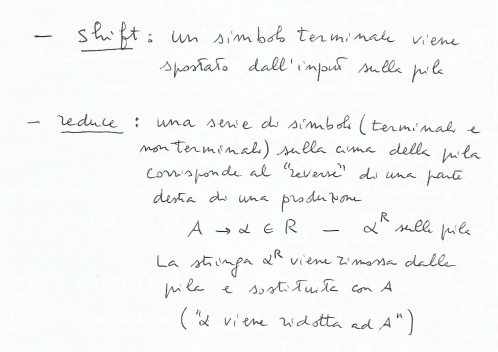 - shift : un simbolo terminale viene
spostato dall'input sulla pila
- reduce : una serie di simboli (terminali e
non terminali) sulla cima della pila
corrisponde al "reverse" di una parte
destra di una produzione
A → α ∈ R — α^R sulla pila
La stringa α^R viene rimossa dalla
pila e sostituita con A
("α viene ridotta ad A")